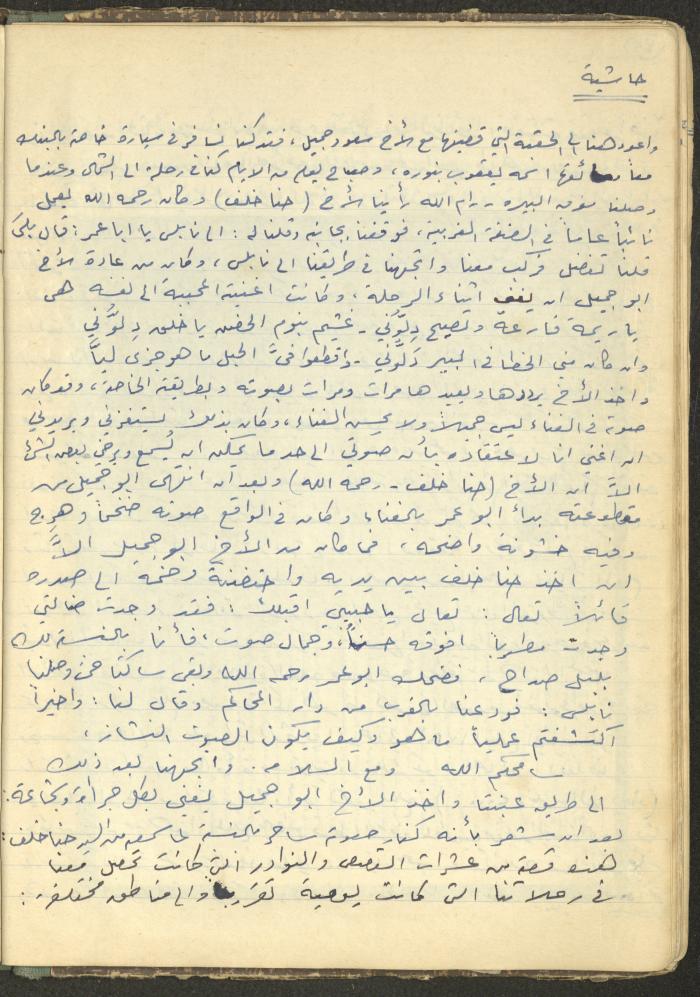 حاشية
واعود هنا الى الحقبة التي قضيتها مع الأخ سعود جميل، فقد كنا نسافر في سيارة خاصة بالبنك
معاً اسمه يعقوب بنوره، وصباح يوم من الايام كنا في رحلة الى الشمال وعندما
وصلنا مفرق البيره - رام الله رأينا الأخ (حنا خلف) وكان رحمه الله يعمل
نائباً عاماً في الضفة الغربية، فوقفنا بجانبه وقلنا له: الى نابلس يا ابا عمر: قال
قلنا تفضل فركب معنا واتجهنا في طريقنا الى نابلس، وكان من عادة الأخ
ابو جميل ان يغني اثناء الرحلة، وكانت اغنيته المحببة الى نفسه هي
يا ريمة قارعة وتصيح دلّوني - غشيم بنوم الحضن يا خلق دلّوني
وان كان مني الخطا في البير دَلّوني - واقطعوا فيَّ الحبل ما هو جزى ليّا
واخذ الأخ يرددها ويعيدها مرات ومرات بصوته وبطريقته الخاصة، وقد كان
صوته في الغناء ليس جميلاً ولا يحسن الغناء، وكان بذلك يستفزني ويريدني
ان اغني انا لاعتقاده بأن صوتي الى حد ما يمكن ان يُسمع ويرضي بعض الشيء
الاَّ ان الأخ (حنا خلف - رحمه الله) وبعد ان انتهى ابو جميل من
مقطوعته بدأ ابو عمر بالغناء وكان في الواقع صوته ضخماً وهرج
وفيه خشونة واضحة، فما كان من الأخ ابو جميل الاَّ
ان اخذ حنا خلف بين يديه واحتضنه وضمه الى صدره
قائلاً تعال: تعال يا حبيبي اقبلك: فقد وجدت ضالتي
وجدت مطرباً افوقه حسناً، وجمال صوت، فأنا بالنسبة لك
بلبل صداح، فضحك ابو عمر رحمه الله وبقي ساكتاً حتى وصلنا
نابلس: فودعنا بالقرب من دار المحاكم وقال لنا: واخيراً
اكتشفتم عملياً ما هو وكيف يكون الصوت النشاز،
سامحكم الله ومع السلامه. واتجهنا بعد ذلك
الى طريق عنبتا واخذ الأخ ابو جميل يغني بكل جراءة وشجاعة:
بعد ان شعر بأنه كنار صوته ساحر بالنسبة لما سمعه من السيد حنا خلف:
هذه قصة من عشرات القصص والنوادر التي كانت تحصل معنا
في رحلاتنا التي كانت يومية تقريباً والى مناطق مختلفة: